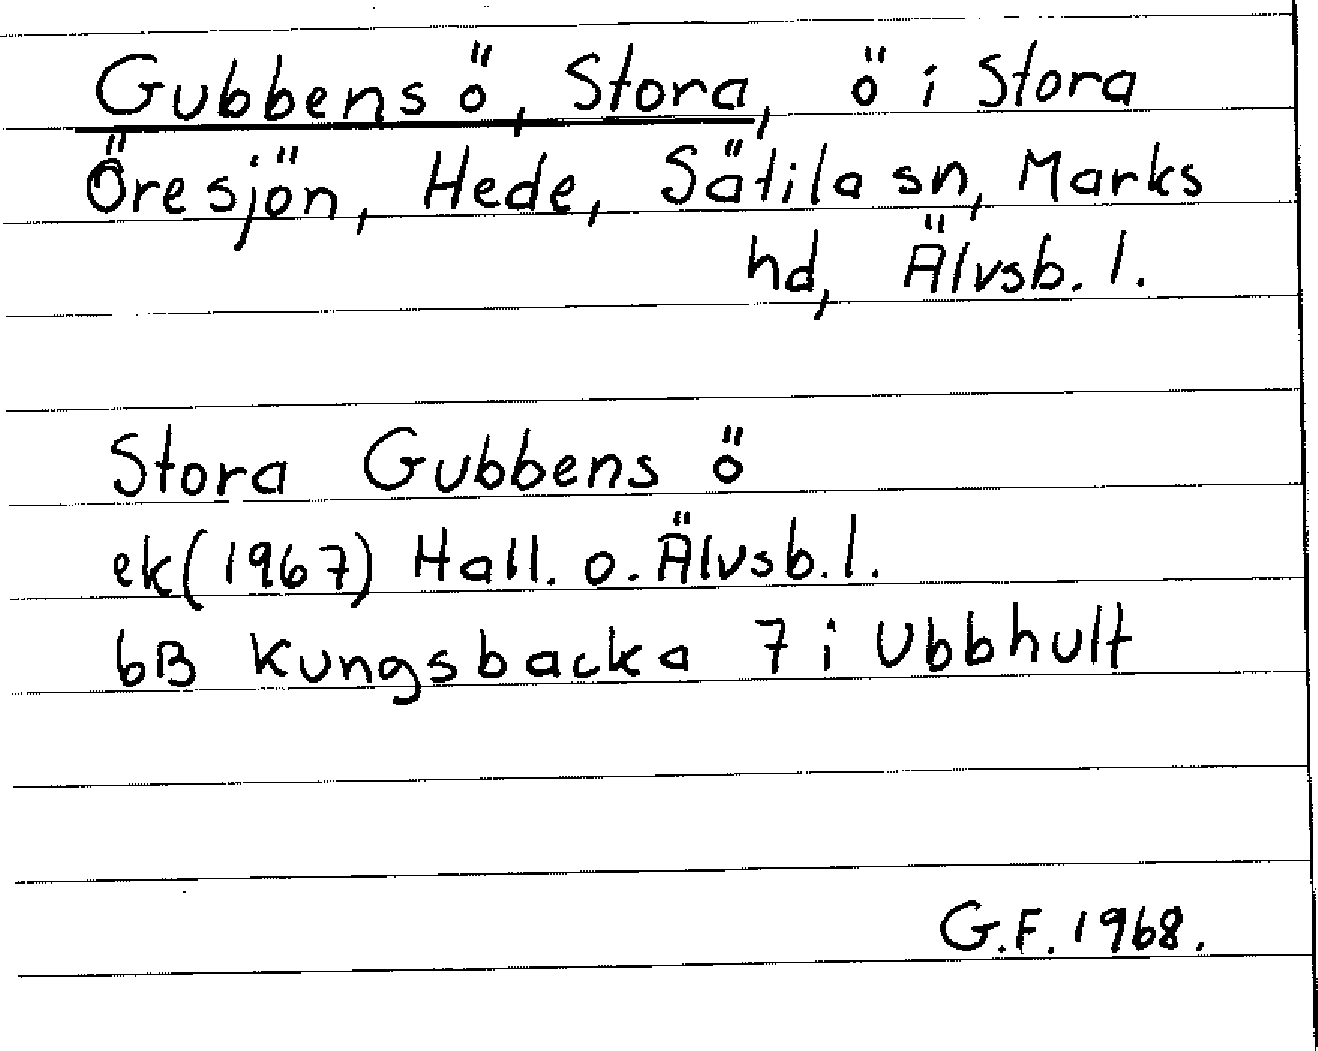 Gubbens ö, Stora, ö i Stora
Öresjön, Hede, Sätila sn, Marks
hd, Älvsb. l.
Stora Gubbens ö
ek (1967) Hall. o. Älvsb. l.
6B Kungsbacka 7 i Ubbhult
G.F. 1968.